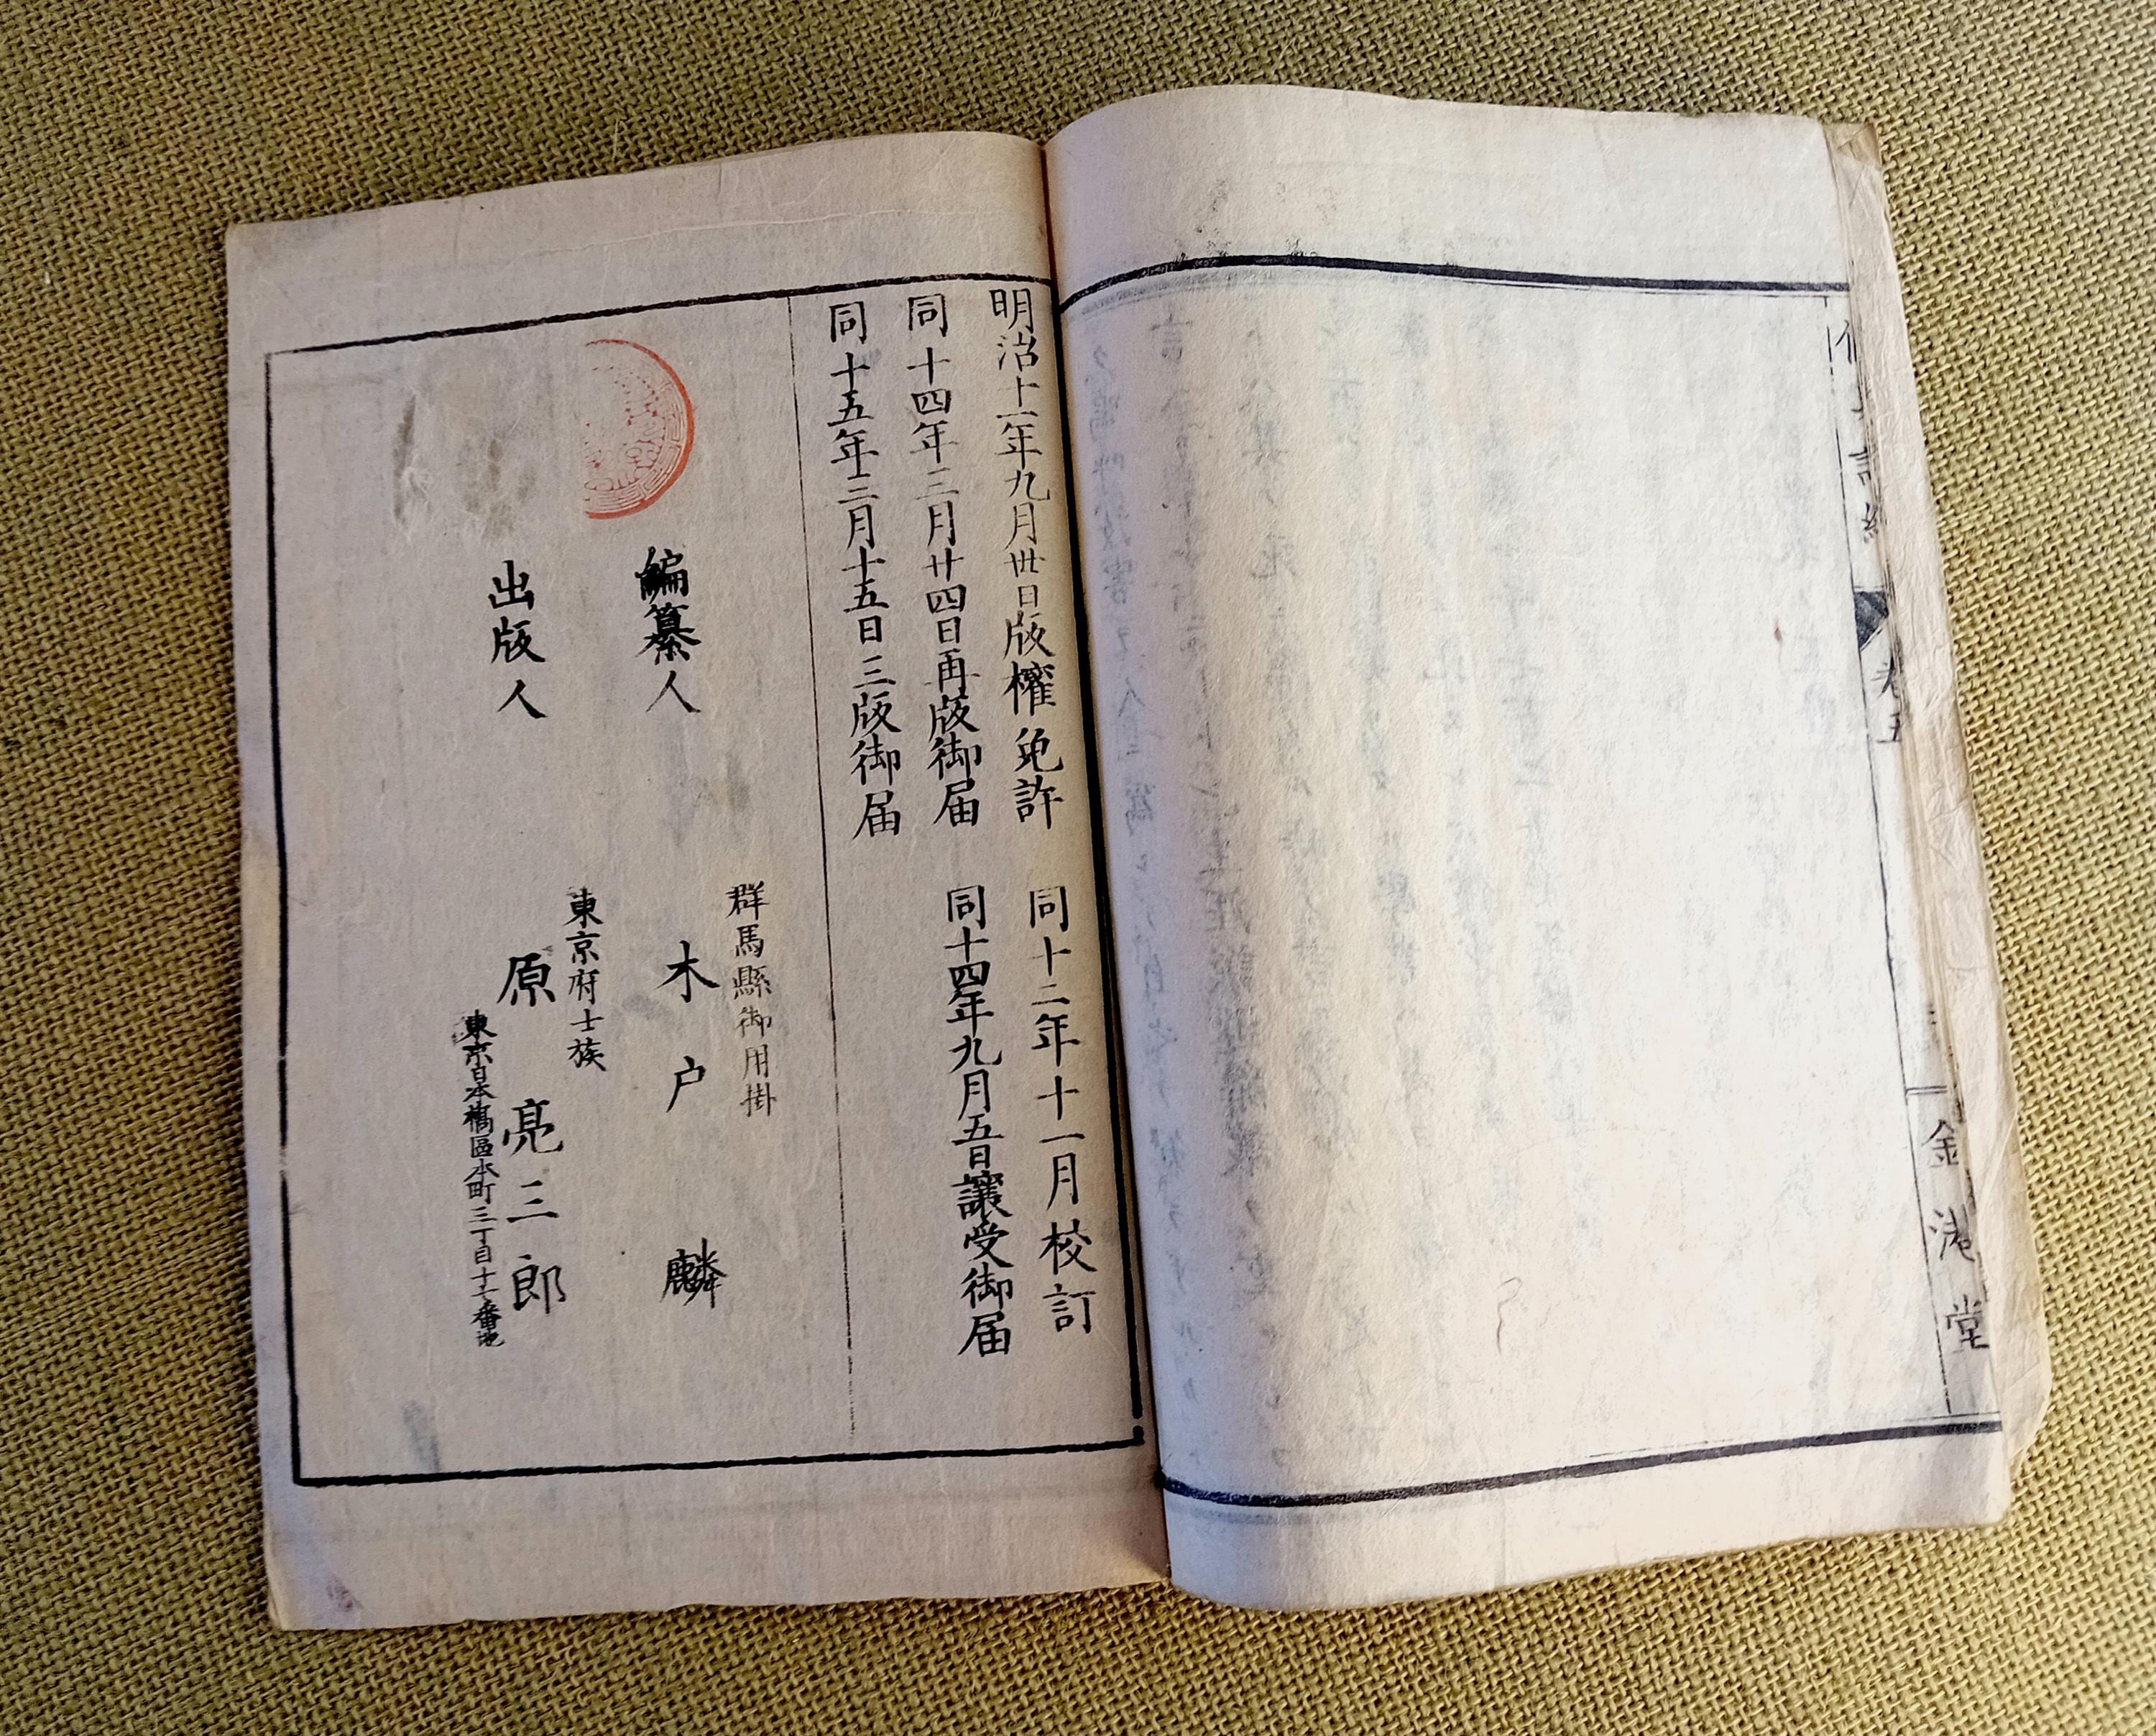 卷五
金港堂
明治十一年九月卅日版權免許
同十二年十一月校訂
同十四年三月廿四日再版御届
同十四年九月五日譲受御届
同十五年三月十五日三版御届
群馬縣御用掛
編纂人 木戸麟
東京府士族
出版人 原亮三郎
東京日本橋區本町三丁目十七番地